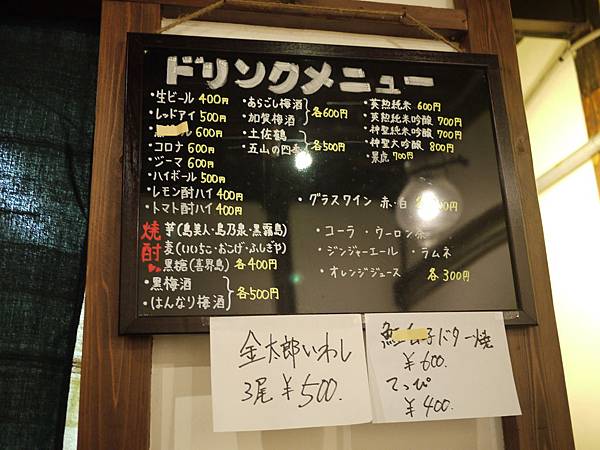 ドリンクメニュー
・生ビール 400円
・レッドアイ 500円
600円
・コロナ 600円
・ジーマ 600円
・ハイボール 500円
・レモン酎ハイ 400円
・トマト酎ハイ 400円
・あらごし梅酒
・加賀梅酒
各600円
・土佐鶴
・五山の四季
各500円
・英勲純米 600円
・英勲純米吟醸 700円
・神聖純米吟醸 700円
・神聖大吟醸 800円
・黒虎 700円
焼酎
芋(島美人・島乃泉・黒霧島)
麦(いいちこ・おこげ・ふしぎや)
黒糖(喜界島) 各400円
・黒梅酒
・はんなり梅酒
各500円
・グラスワイン 赤・白
・コーラ ・ウーロン茶
・ジンジャーエール ・ラムネ
・オレンジジュース 各300円
金太郎いわし
3尾 ¥500.
子バター焼
¥600.
てっぴ
¥400.